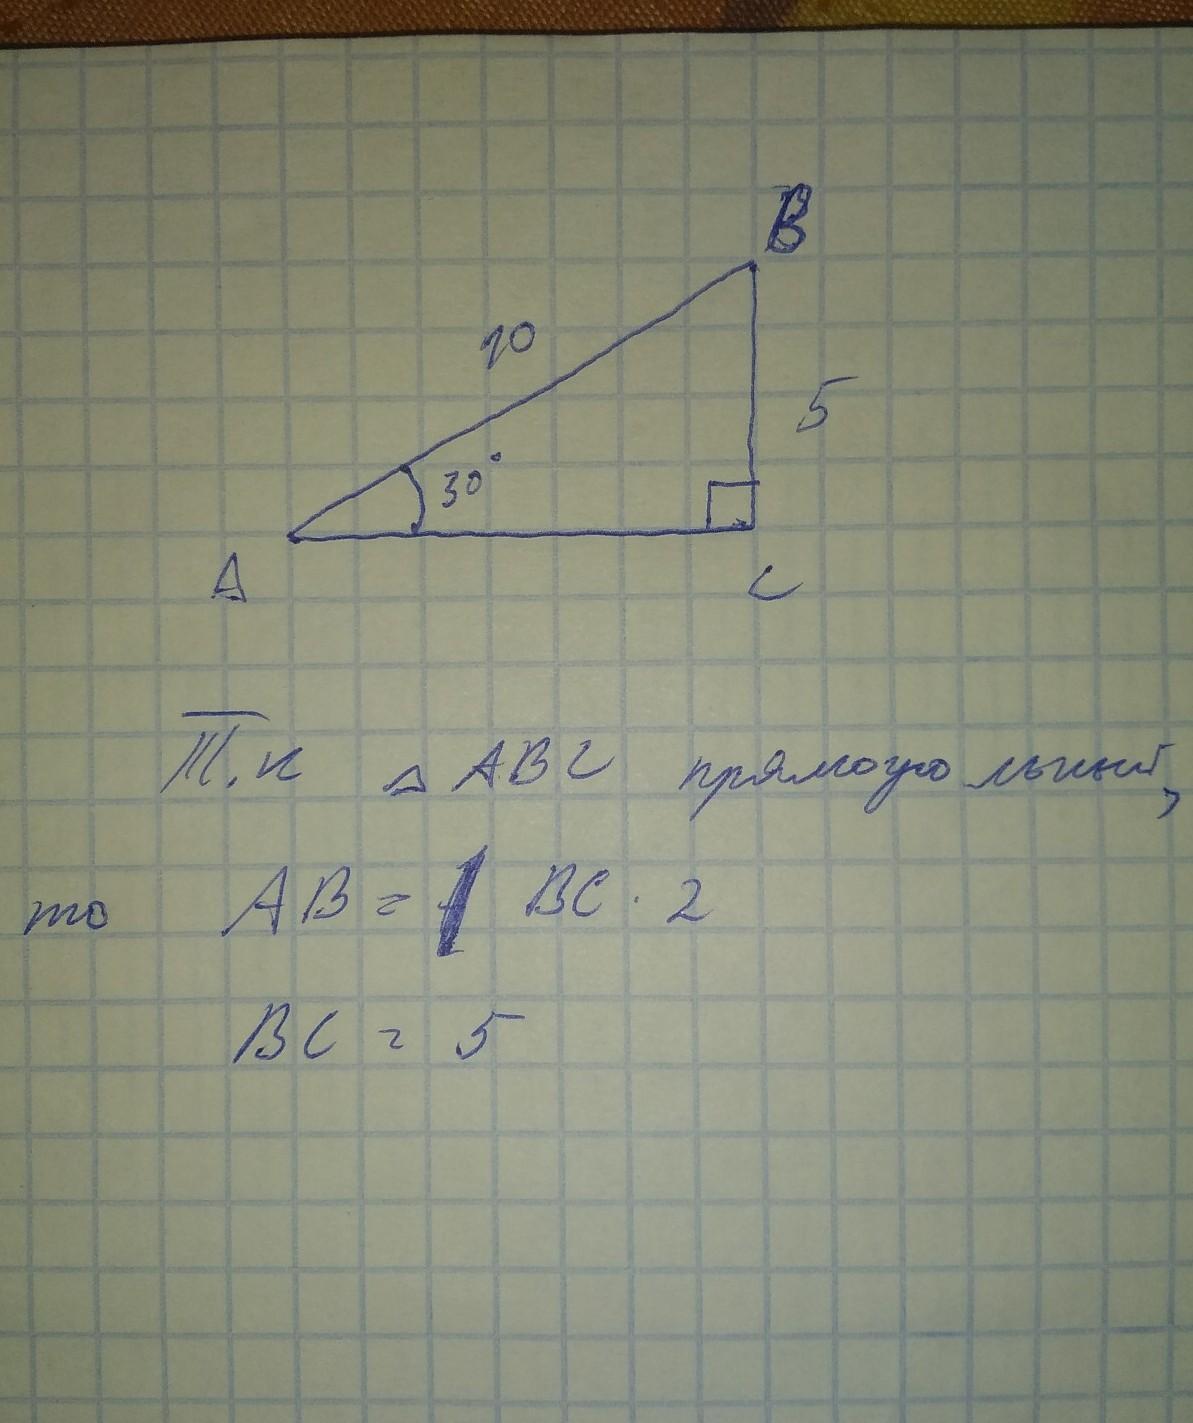 B
10
5
30°
A
C
Т.к △ABC прямоугольный,
то AB = BC · 2
BC = 5